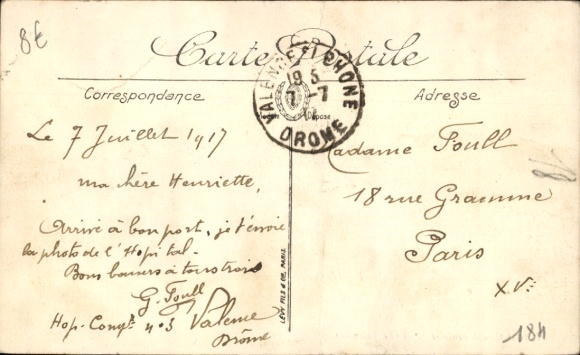 8€
Carte Postale
Correspondance
Adresse
VALENCE S/ RHONE
19 5
7 - 7
17
DROME
Le 7 Juillet 1917
ma chère Henriette,
Arrivé à bon port, je t'envoie
la photo de l'Hopital.
Bons baisers à tous trois
G. Foull
Hop. Compt. no 3 Valence
Drôme
LEVY FILS & CIE, PARIS
Madame Foull
18 rue Gramme
Paris
XVe
184